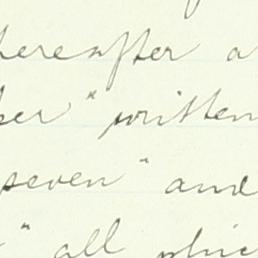 hereafter a
per " written
seven " and
" all whic